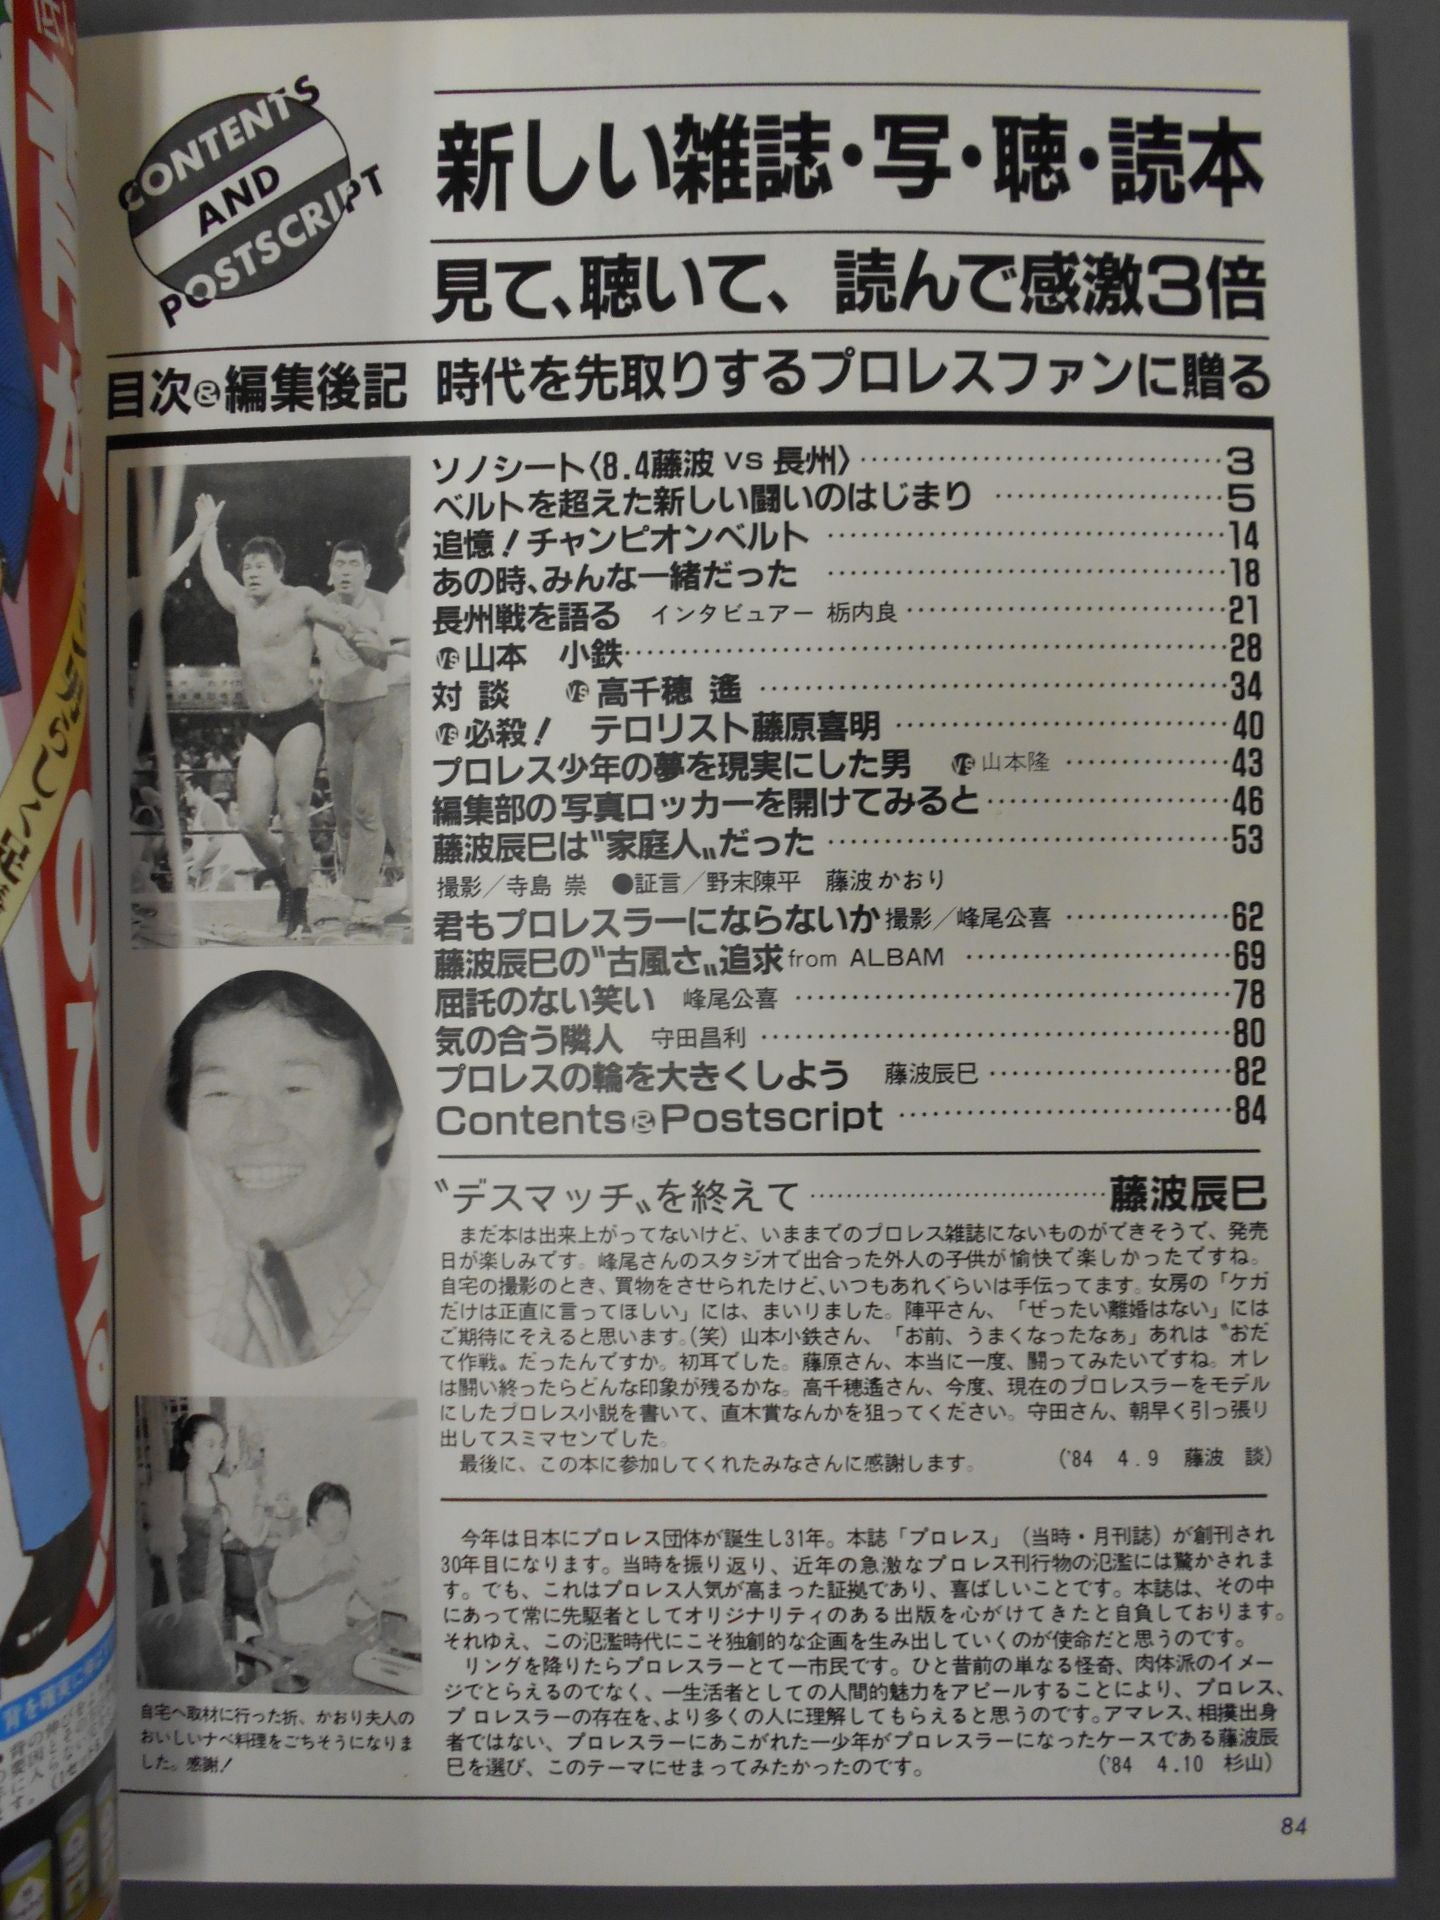 CONTENTS
AND
POSTSCRIPT
新しい雑誌・写・聴・読本
見て、聴いて、読んで感激3倍
目次&編集後記 時代を先取りするプロレスファンに贈る
ソノシート〈8.4藤波 vs 長州〉……3
ベルトを超えた新しい闘いのはじまり……5
追憶!チャンピオンベルト……14
あの時、みんな一緒だった……18
長州戦を語る インタビュアー 栃内良……21
vs山本 小鉄……28
対談 vs高千穂 遙……34
vs必殺! テロリスト藤原喜明……40
プロレス少年の夢を現実にした男 vs山本隆……43
編集部の写真ロッカーを開けてみると……46
藤波辰巳は〝家庭人〟だった……53
撮影/寺島 崇 ●証言/野末陳平 藤波かおり
君もプロレスラーにならないか 撮影/峰尾公喜……62
藤波辰巳の〝古風さ〟追求 from ALBAM……69
屈託のない笑い 峰尾公喜……78
気の合う隣人 守田昌利……80
プロレスの輪を大きくしよう 藤波辰巳……82
Contents&Postscript……84
〝デスマッチ〟を終えて……藤波辰巳
まだ本は出来上がってないけど、いままでのプロレス雑誌にないものができそうで、発売
日が楽しみです。峰尾さんのスタジオで出合った外人の子供が愉快で楽しかったですね。
自宅の撮影のとき、買物をさせられたけど、いつもあれぐらいは手伝ってます。女房の「ケガ
だけは正直に言ってほしい」には、まいりました。陣平さん、「ぜったい離婚はない」には
ご期待にそえると思います。(笑)山本小鉄さん、「お前、うまくなったなぁ」あれは〝おだ
て作戦〟だったんですか。初耳でした。藤原さん、本当に一度、闘ってみたいですね。オレ
は闘い終ったらどんな印象が残るかな。高千穂遙さん、今度、現在のプロレスラーをモデル
にしたプロレス小説を書いて、直木賞なんかを狙ってください。守田さん、朝早く引っ張り
出してスミマセンでした。
最後に、この本に参加してくれたみなさんに感謝します。 ('84 4.9 藤波 談)
今年は日本にプロレス団体が誕生し31年。本誌「プロレス」(当時・月刊誌)が創刊され
30年目になります。当時を振り返り、近年の急激なプロレス刊行物の氾濫には驚かされま
す。でも、これはプロレス人気が高まった証拠であり、喜ばしいことです。本誌は、その中
にあって常に先駆者としてオリジナリティのある出版を心がけてきたと自負しております。
それゆえ、この氾濫時代にこそ独創的な企画を生み出していくのが使命だと思うのです。
リングを降りたらプロレスラーとて一市民です。ひと昔前の単なる怪奇、肉体派のイメー
ジでとらえるのでなく、一生活者としての人間的魅力をアピールすることにより、プロレス、
プロレスラーの存在を、より多くの人に理解してもらえると思うのです。アマレス、相撲出身
者ではない、プロレスラーにあこがれた一少年がプロレスラーになったケースである藤波辰
巳を選び、このテーマにせまってみたかったのです。 ('84 4.10 杉山)
自宅へ取材に行った折、かおり夫人の
おいしいナベ料理をごちそうになりま
した。感謝!
84